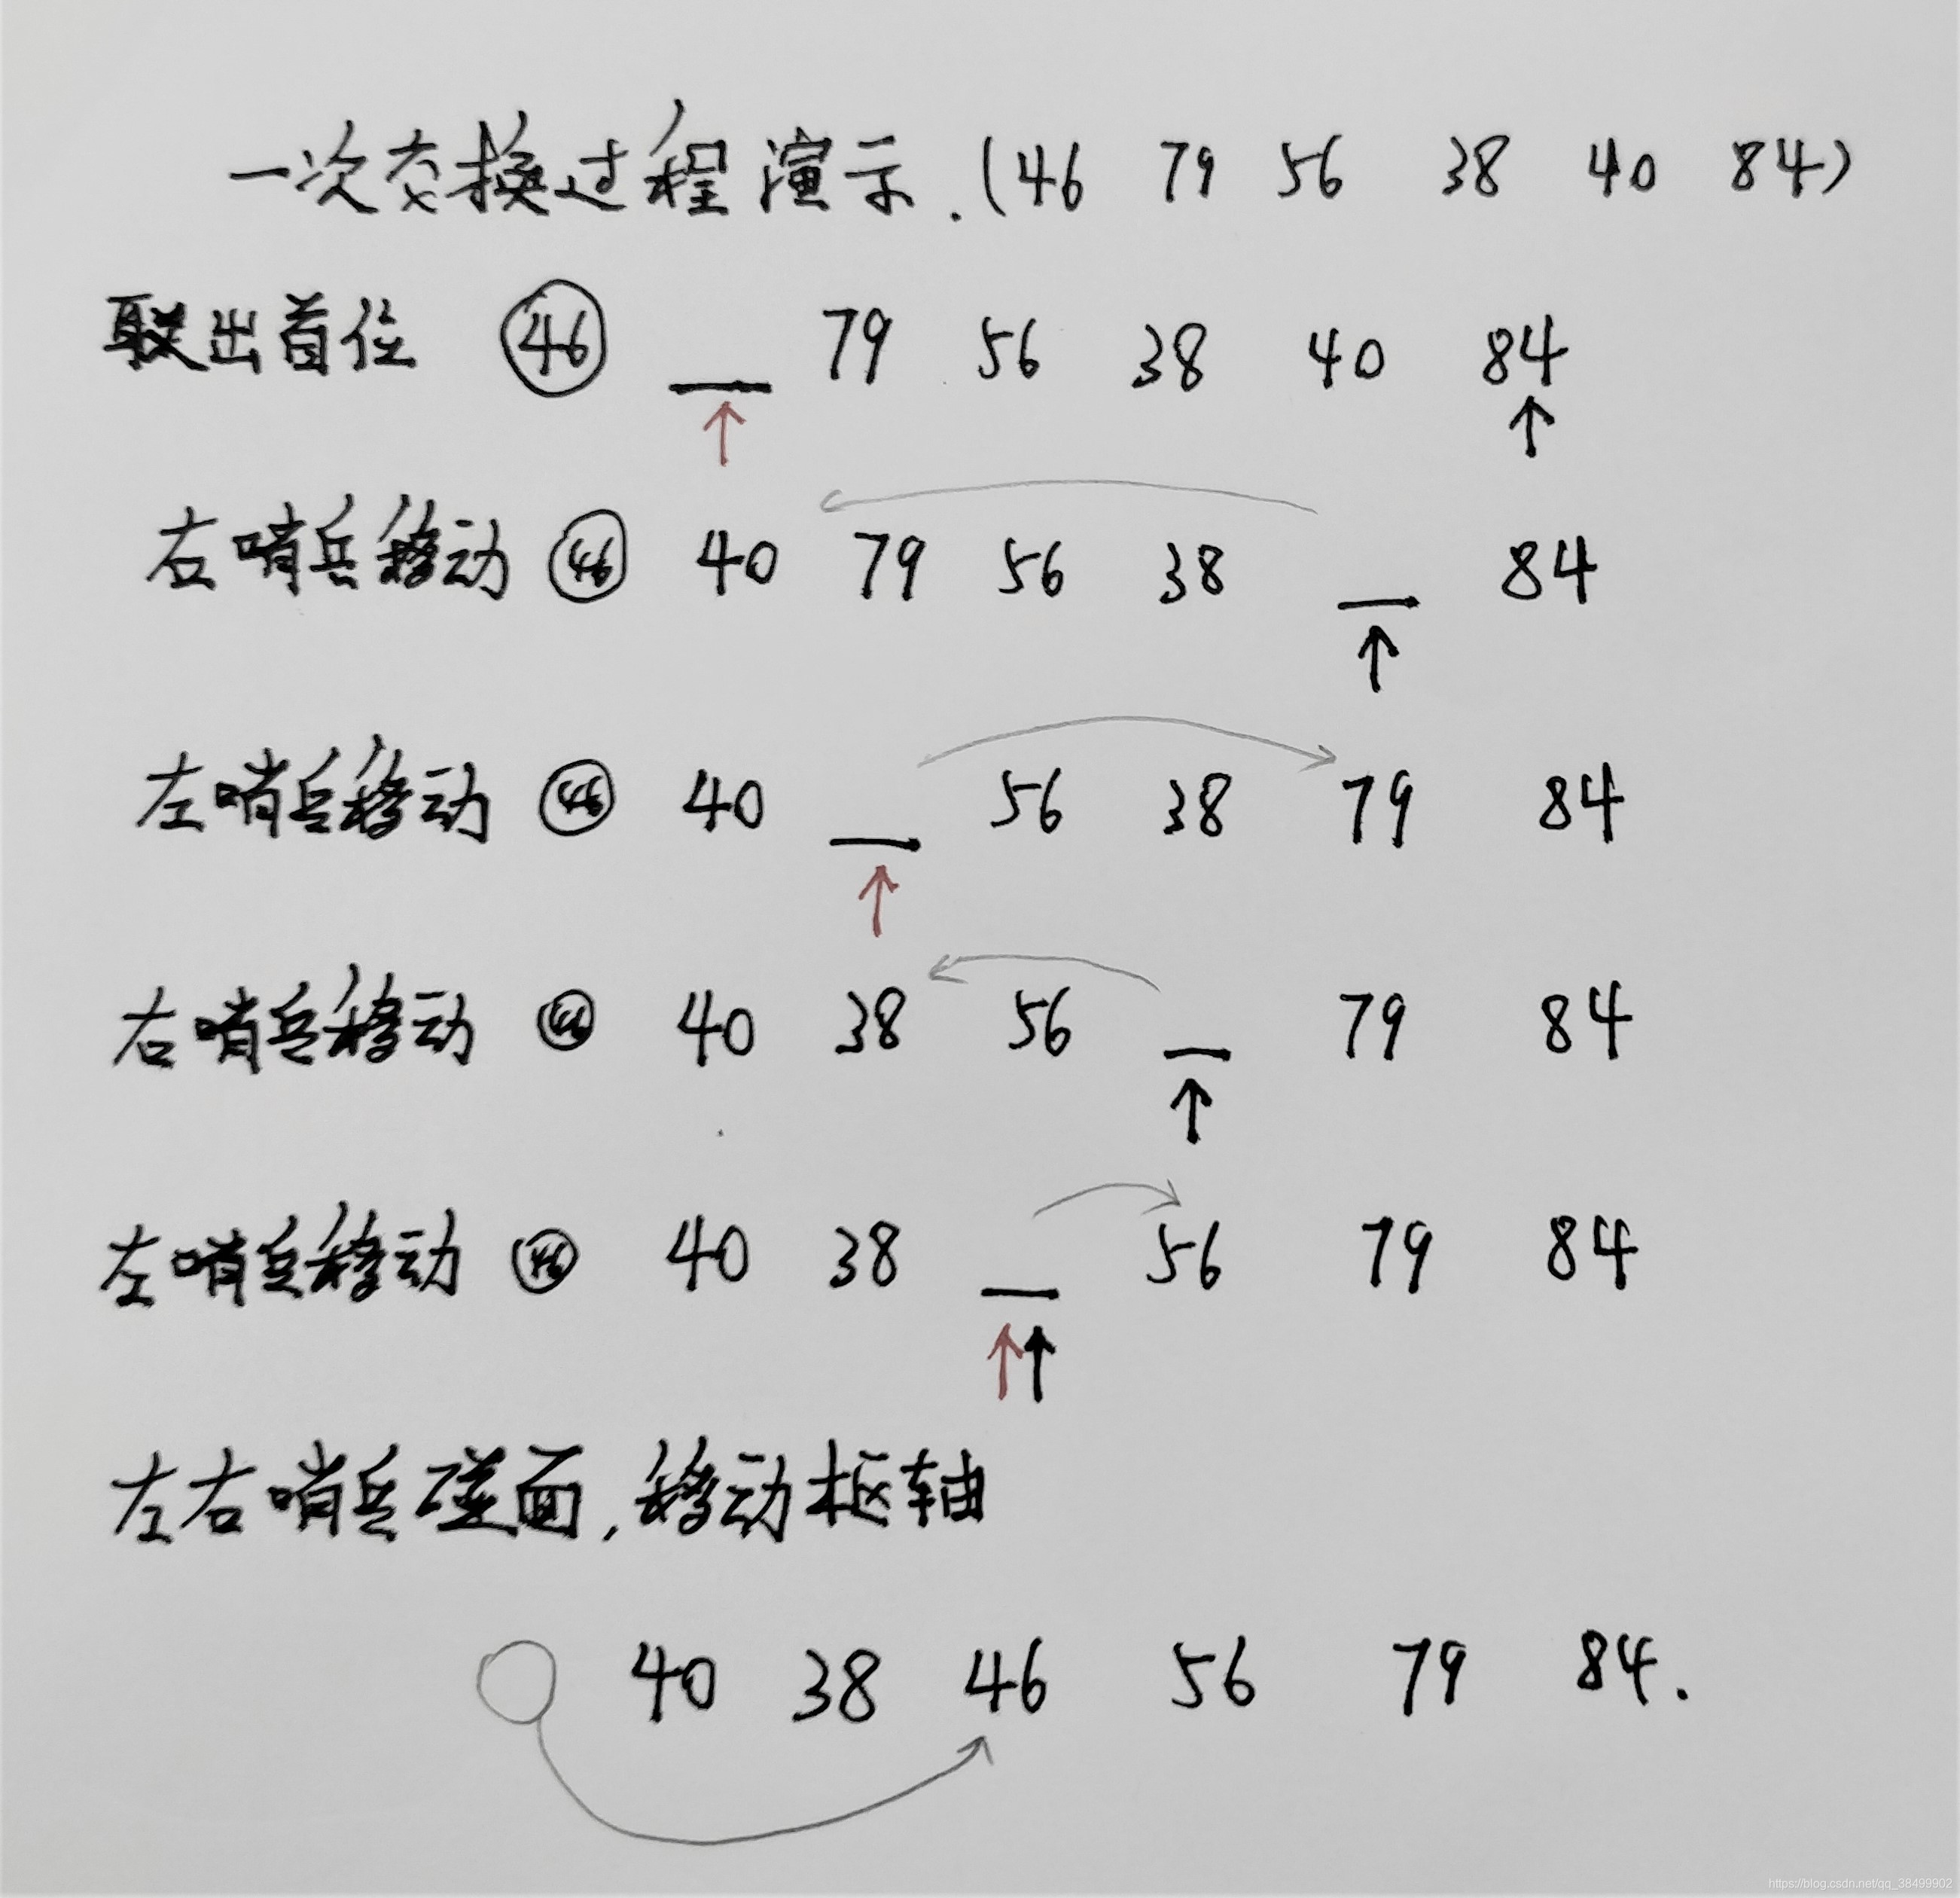 一次交换过程演示.(46 79 56 38 40 84)
取出首位 46 __ 79 56 38 40 84
右哨兵移动 46 40 79 56 38 __ 84
左哨兵移动 46 40 __ 56 38 79 84
右哨兵移动 46 40 38 56 __ 79 84
左哨兵移动 46 40 38 __ 56 79 84
左右哨兵碰面,移动枢轴
40 38 46 56 79 84.
https://blog.csdn.net/qq_38499902